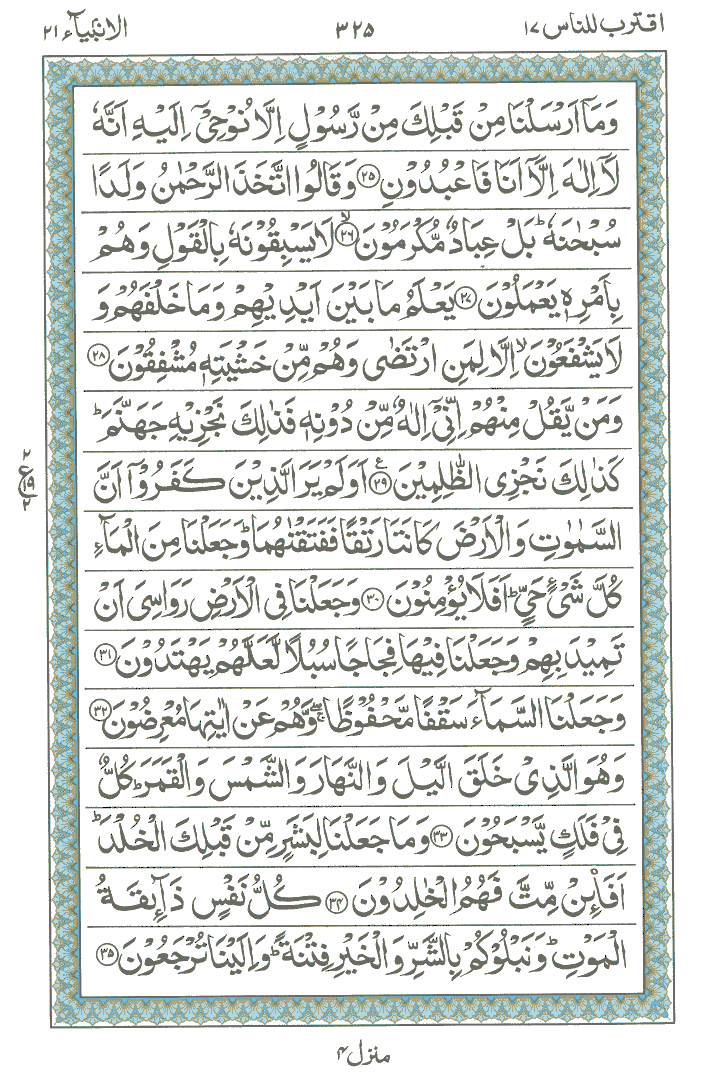 اقترب للناس ۱۷ ۳۲۵ الانبیآء ۲۱
وَمَاۤ اَرۡسَلۡنَا مِنۡ قَبۡلِكَ مِنۡ رَّسُوۡلٍ اِلَّا نُوۡحِىۡۤ اِلَيۡهِ اَنَّهٗ
لَاۤ اِلٰهَ اِلَّاۤ اَنَا فَاعۡبُدُوۡنِ ﴿۲۵﴾ وَقَالُوا اتَّخَذَ الرَّحۡمٰنُ وَلَدًا
سُبۡحٰنَهٗ‌ؕ بَلۡ عِبَادٌ مُّكۡرَمُوۡنَۙ ﴿۲۶﴾ لَا يَسۡبِقُوۡنَهٗ بِالۡقَوۡلِ وَهُمۡ
بِاَمۡرِهٖ يَعۡمَلُوۡنَ ﴿۲۷﴾ يَعۡلَمُ مَا بَيۡنَ اَيۡدِيۡهِمۡ وَمَا خَلۡفَهُمۡ وَ
لَا يَشۡفَعُوۡنَۙ اِلَّا لِمَنِ ارۡتَضٰى وَهُمۡ مِّنۡ خَشۡيَتِهٖ مُشۡفِقُوۡنَ ﴿۲۸﴾
وَمَنۡ يَّقُلۡ مِنۡهُمۡ اِنِّىۡۤ اِلٰهٌ مِّنۡ دُوۡنِهٖ فَذٰلِكَ نَجۡزِيۡهِ جَهَنَّمَ‌ؕ
كَذٰلِكَ نَجۡزِى الظّٰلِمِيۡنَ ﴿۲۹﴾ ع اَوَلَمۡ يَرَ الَّذِيۡنَ كَفَرُوۡۤا اَنَّ
۲ ع ۱۹ ۲
السَّمٰوٰتِ وَالۡاَرۡضَ كَانَتَا رَتۡقًا فَفَتَقۡنٰهُمَا‌ؕ وَجَعَلۡنَا مِنَ الۡمَآءِ
كُلَّ شَىۡءٍ حَىٍّ‌ؕ اَفَلَا يُؤۡمِنُوۡنَ ﴿۳۰﴾ وَجَعَلۡنَا فِى الۡاَرۡضِ رَوَاسِىَ اَنۡ
تَمِيۡدَ بِهِمۡ وَجَعَلۡنَا فِيۡهَا فِجَاجًا سُبُلًا لَّعَلَّهُمۡ يَهۡتَدُوۡنَ ﴿۳۱﴾
وَجَعَلۡنَا السَّمَآءَ سَقۡفًا مَّحۡفُوۡظًا ۖۚ وَّهُمۡ عَنۡ اٰيٰتِهَا مُعۡرِضُوۡنَ ﴿۳۲﴾
وَهُوَ الَّذِىۡ خَلَقَ الَّيۡلَ وَالنَّهَارَ وَالشَّمۡسَ وَالۡقَمَرَ‌ؕ كُلٌّ
فِىۡ فَلَكٍ يَّسۡبَحُوۡنَ ﴿۳۳﴾ وَمَا جَعَلۡنَا لِبَشَرٍ مِّنۡ قَبۡلِكَ الۡخُلۡدَ‌ؕ
اَفَا۟ئِنْ مِّتَّ فَهُمُ الۡخٰلِدُوۡنَ ﴿۳۴﴾ كُلُّ نَفۡسٍ ذَآئِقَةُ
الۡمَوۡتِ‌ؕ وَنَبۡلُوۡكُمۡ بِالشَّرِّ وَالۡخَيۡرِ فِتۡنَةً‌ؕ وَاِلَيۡنَا تُرۡجَعُوۡنَ ﴿۳۵﴾
منزل ۴